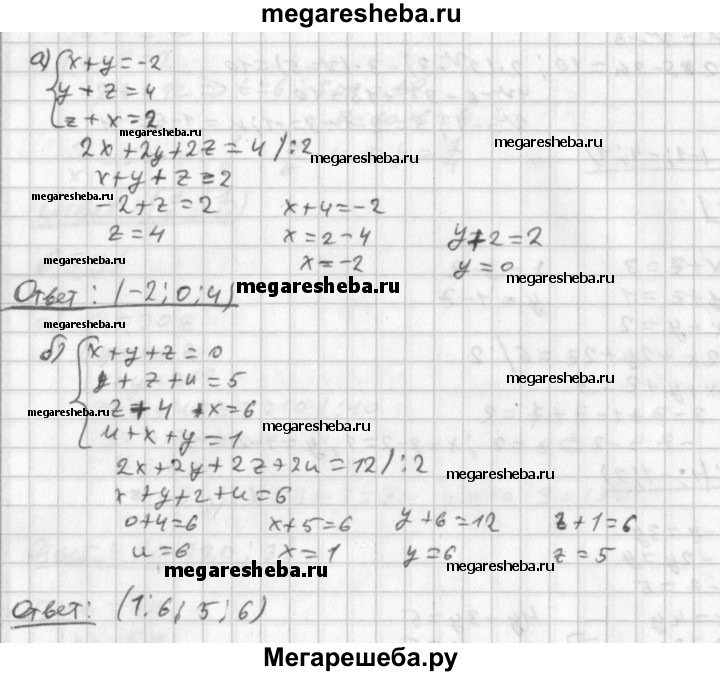 megaresheba.ru
а) x+y=-2
y+z=4
z+x=2
megaresheba.ru
2x+2y+2z=4/:2
megaresheba.ru
megaresheba.ru
x+y+z=2
megaresheba.ru
-2+z=2 x+4=-2
megaresheba.ru
z=4 x=2-4 y+2=2
megaresheba.ru
x=-2 y=0
Ответ: (-2;0;4)
megaresheba.ru
megaresheba.ru
б) x+y+z=0
y+z+u=5
megaresheba.ru
z+4+x=6
megaresheba.ru
megaresheba.ru
u+x+y=1
2x+2y+2z+2u=12/:2
megaresheba.ru
x+y+z+u=6
0+4=6 x+5=6 y+6=12 z+1=6
u=6 x=1 y=6 z=5
megaresheba.ru
megaresheba.ru
Ответ: (1;6;5;6)
Мегарешеба.ру